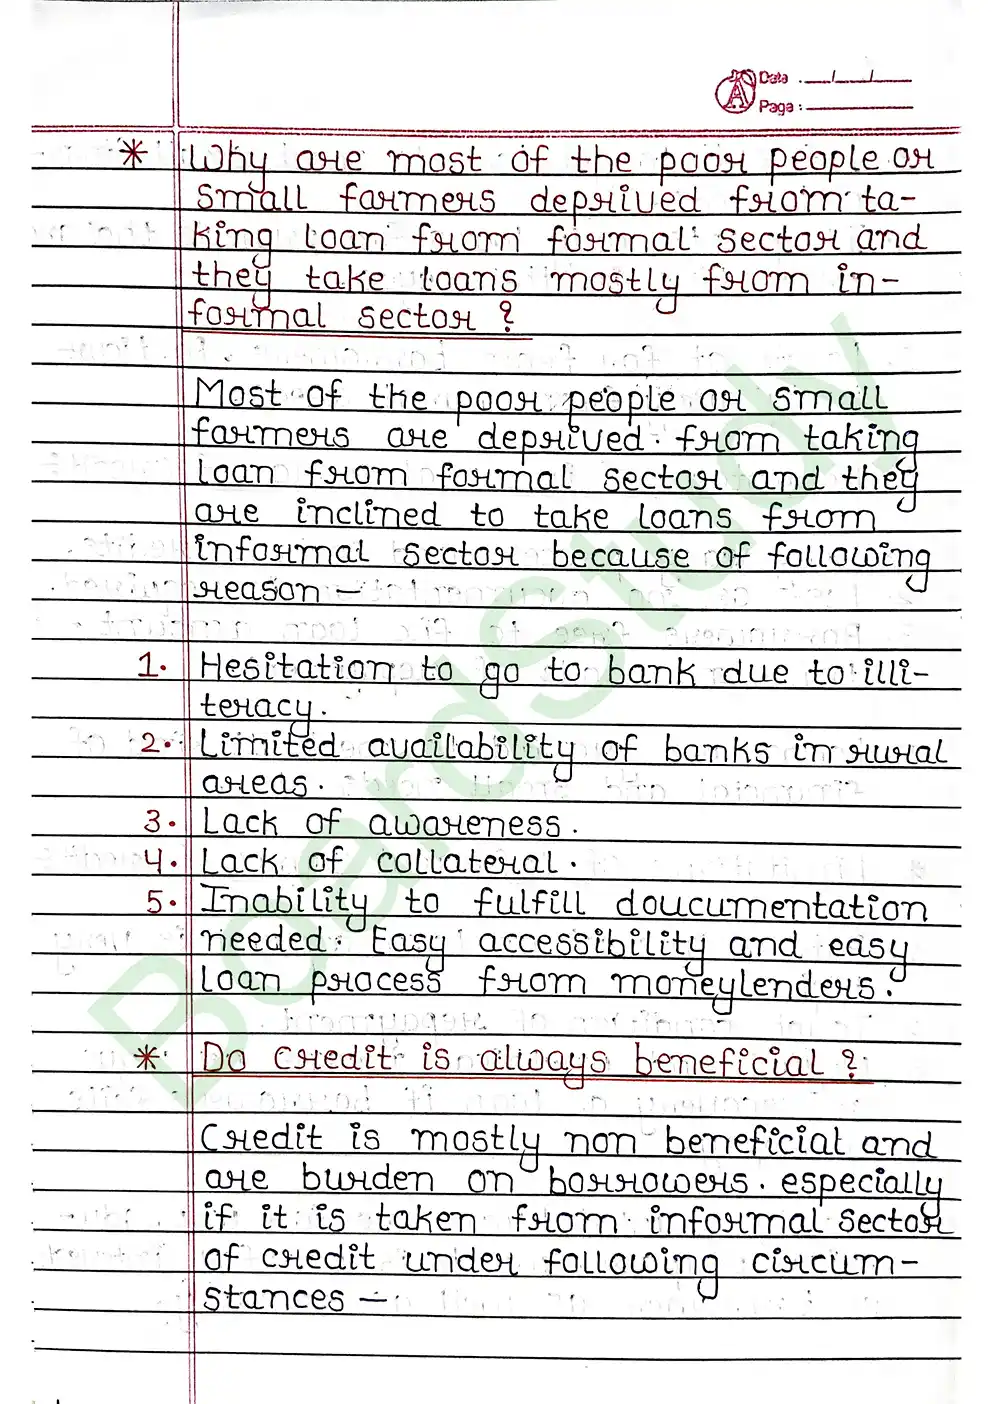 Data : __/__/__
Paga : ______
* Why are most of the poor people or
small farmers deprived from ta-
king loan from formal sector and
they take loans mostly from in-
formal sector ?
Most of the poor people or small
farmers are deprived. from taking
loan from formal sector and they
are inclined to take loans from
informal sector because of following
reason –
1. Hesitation to go to bank due to illi-
teracy.
2. Limited availability of banks in rural
areas.
3. Lack of awareness.
4. Lack of collateral.
5. Inability to fulfill doucumentation
needed. Easy accessibility and easy
loan process from moneylenders.
* Do credit is always beneficial ?
Credit is mostly non beneficial and
are burden on borrowers. especially
if it is taken from informal sector
of credit under following circum-
stances –
BoardStudy